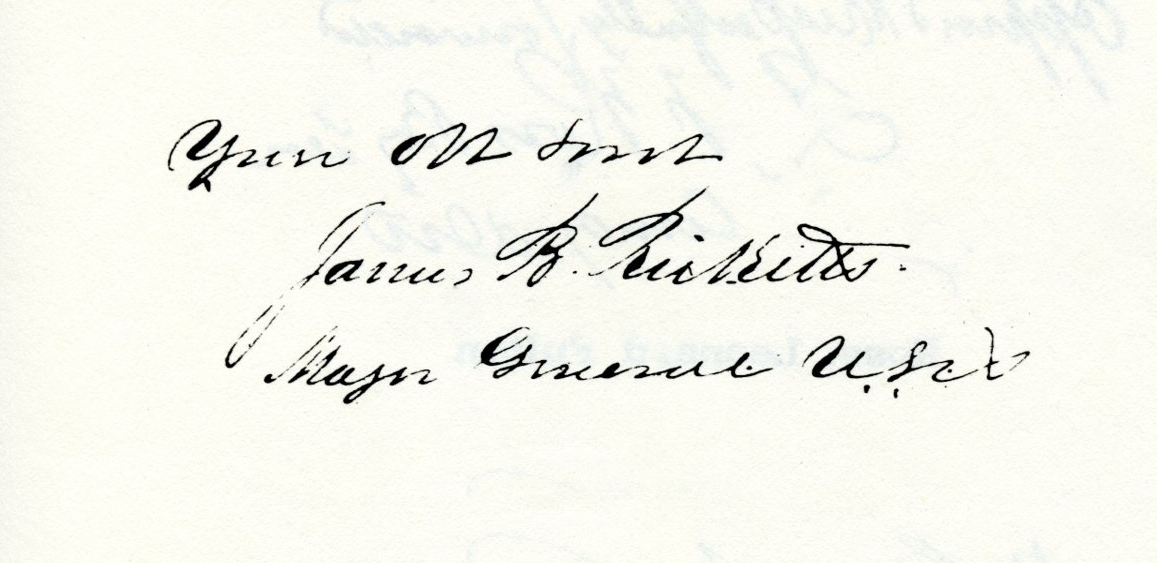 Your Obt Servt
James B. Ricketts.
Major General U.S.